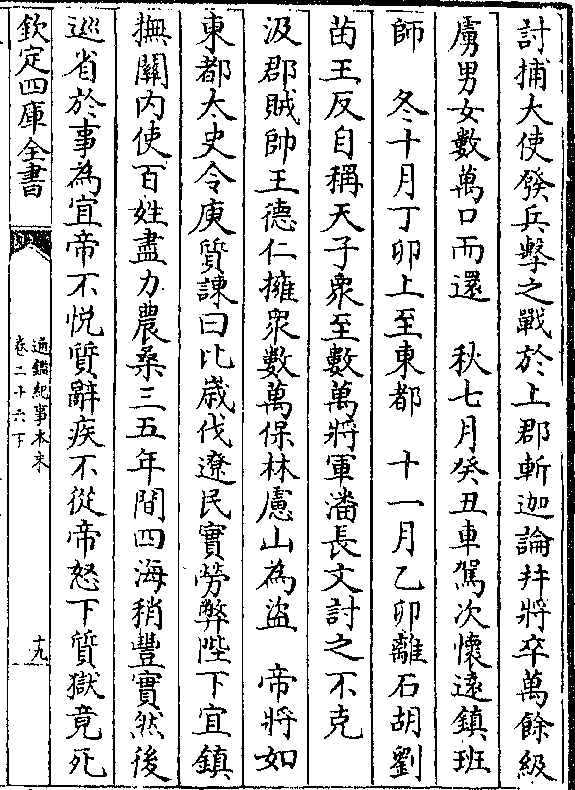 討捕大使發兵擊之戰於上郡斬迦論并將卒萬餘級
虜男女數萬口而還　秋七月癸丑車駕次懷遠鎮班
師　冬十月丁卯上至東都　十一月乙卯離石胡劉
苗王反自稱天子衆至數萬將軍潘長文討之不克
汲郡賊帥王德仁擁衆數萬保林慮山為盜　帝將如
東都太史令庾質諫曰比歲伐遼民實勞弊陛下宜鎮
撫關內使百姓盡力農桑三五年間四海稍豐實然後
廵省於事為宜帝不悅質辭疾不從帝怒下質獄竟死
欽定四庫全書
通鑑紀事本末
卷二十六下
十九